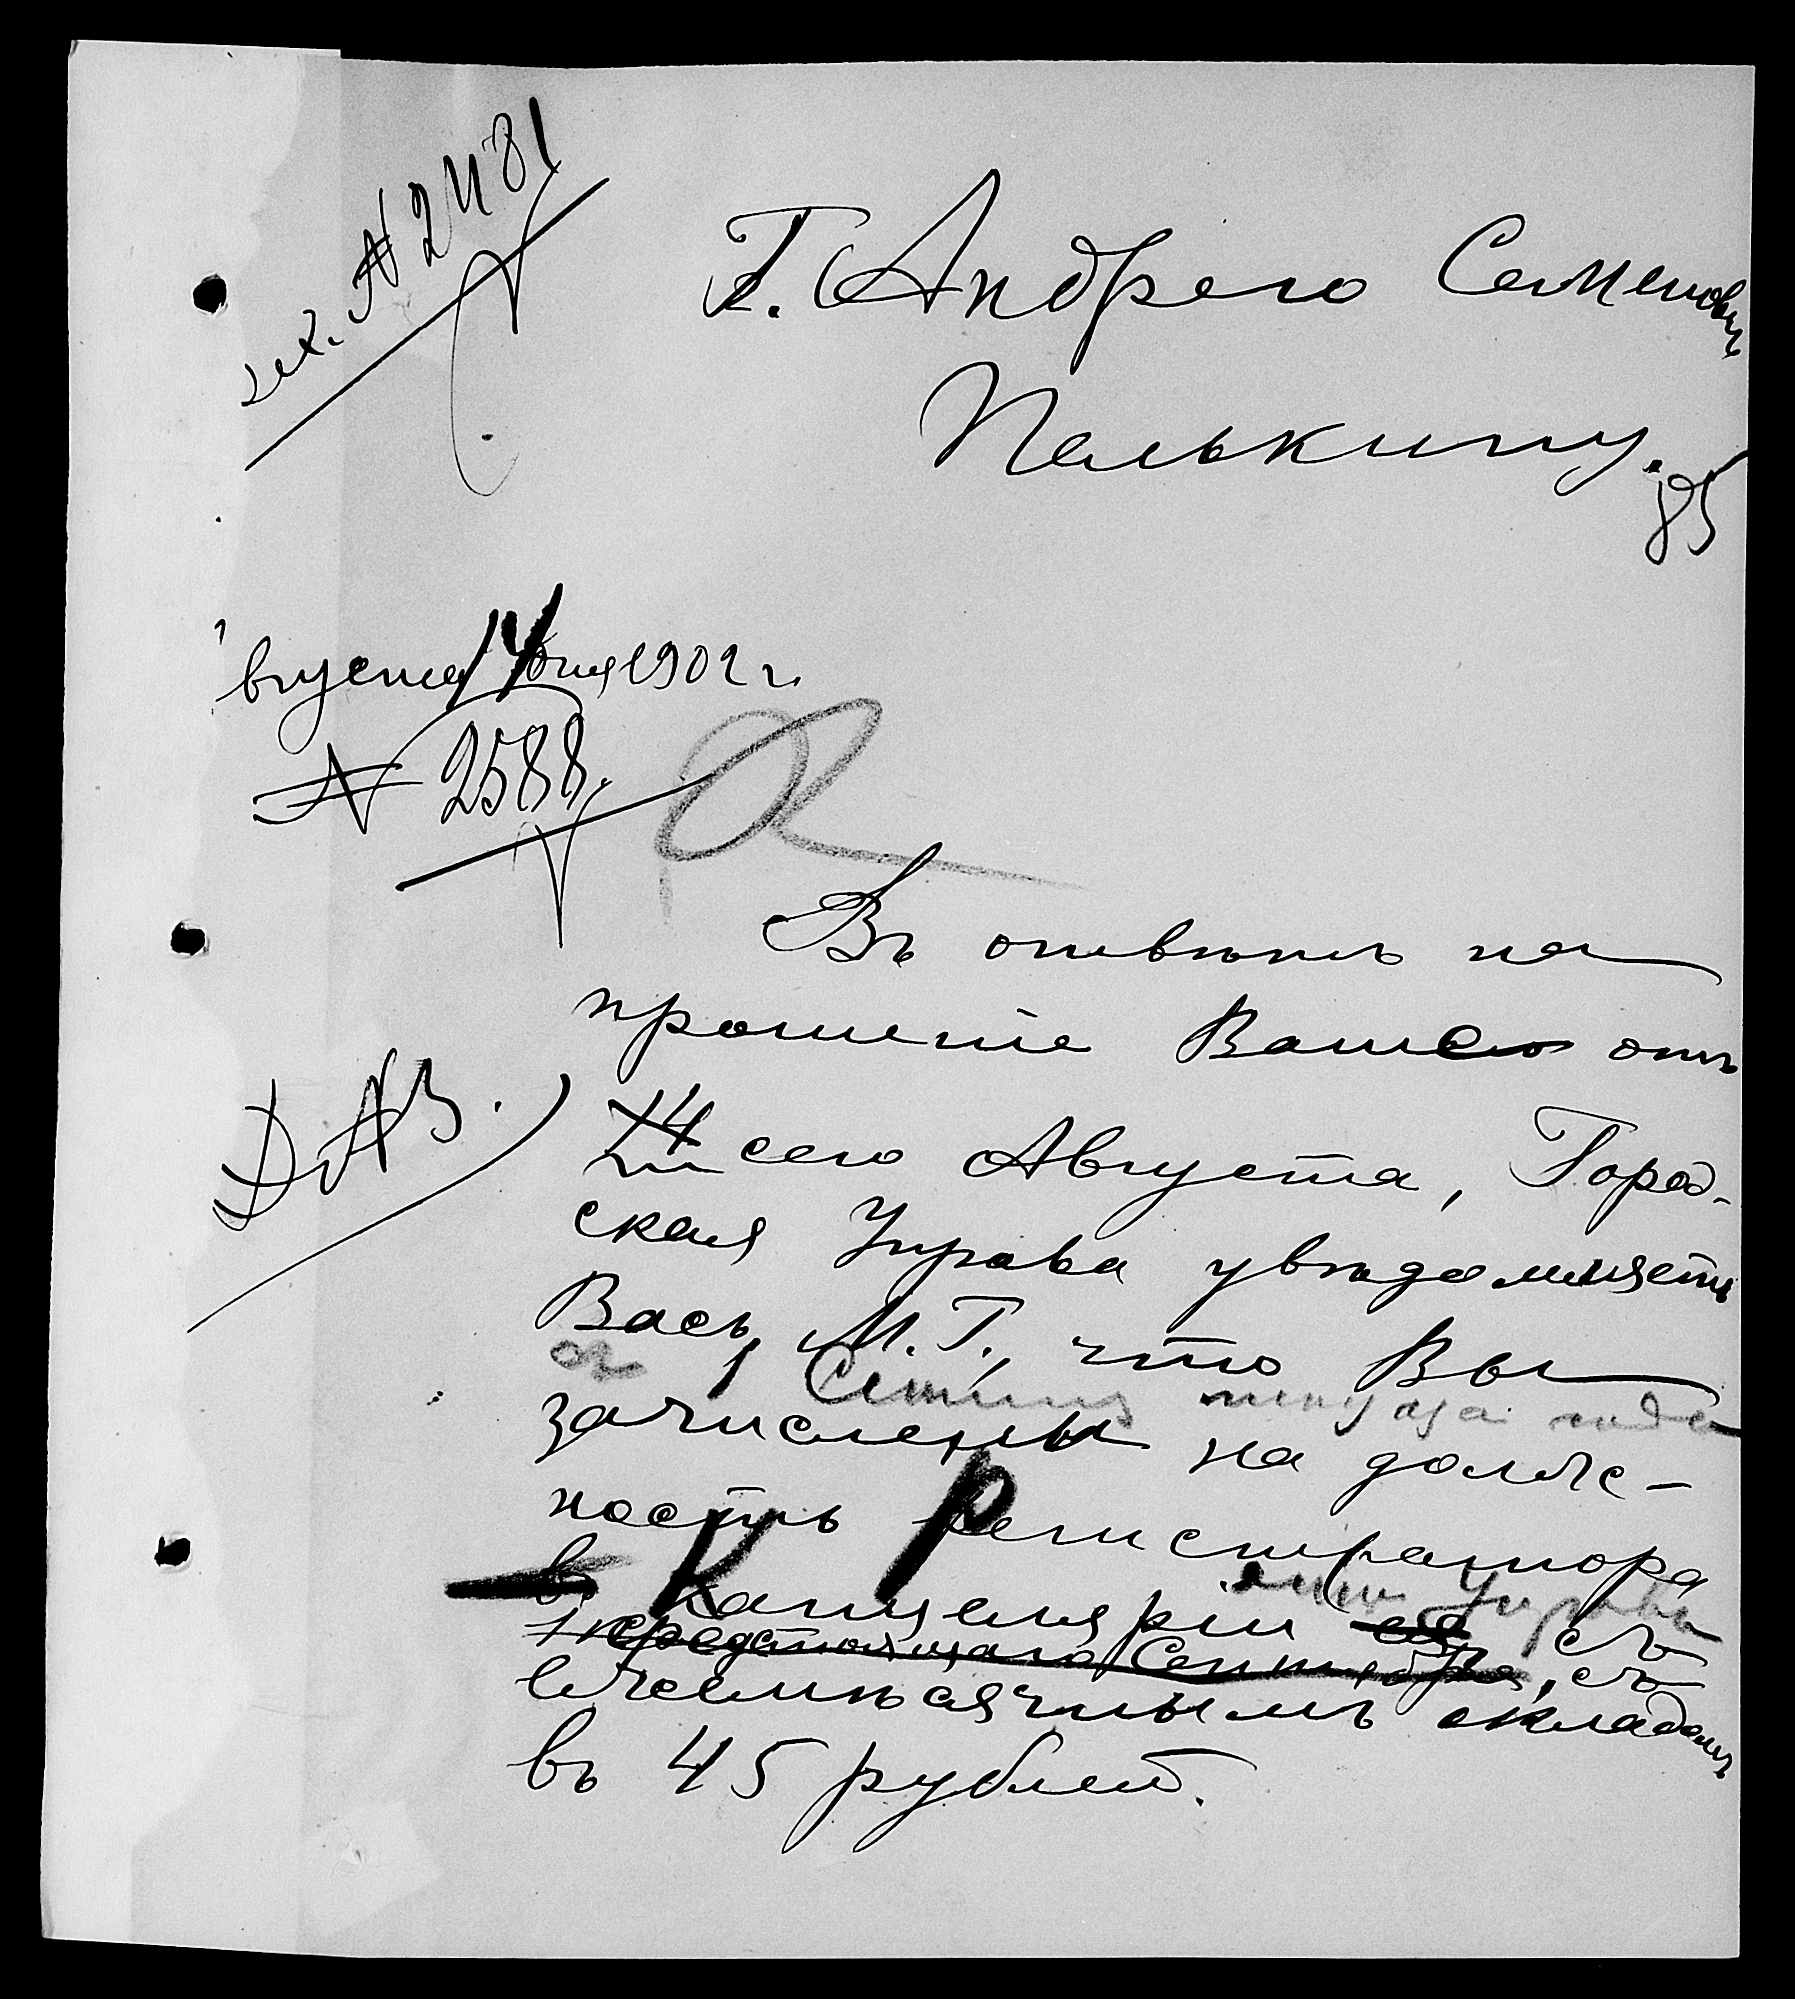 вх. № 2481
Г. Андрею Семенович
Палькину.
85
вгуста 14 дня 1902 г.
№ 2588.
Въ отвѣтъ на
прошеніе Ваше отъ
14 сего Августа, Город-
ская Управа увѣдомляетъ
Васъ, М. Г., что Вы
съ 1 Сентября текущаго года
зачислены на долж-
ность регистратора
въ Канцеляріи ея, съ
Управы
1 предстоящаго Сентября, съ
ежемѣсячнымъ окладомъ
въ 45 рублей.